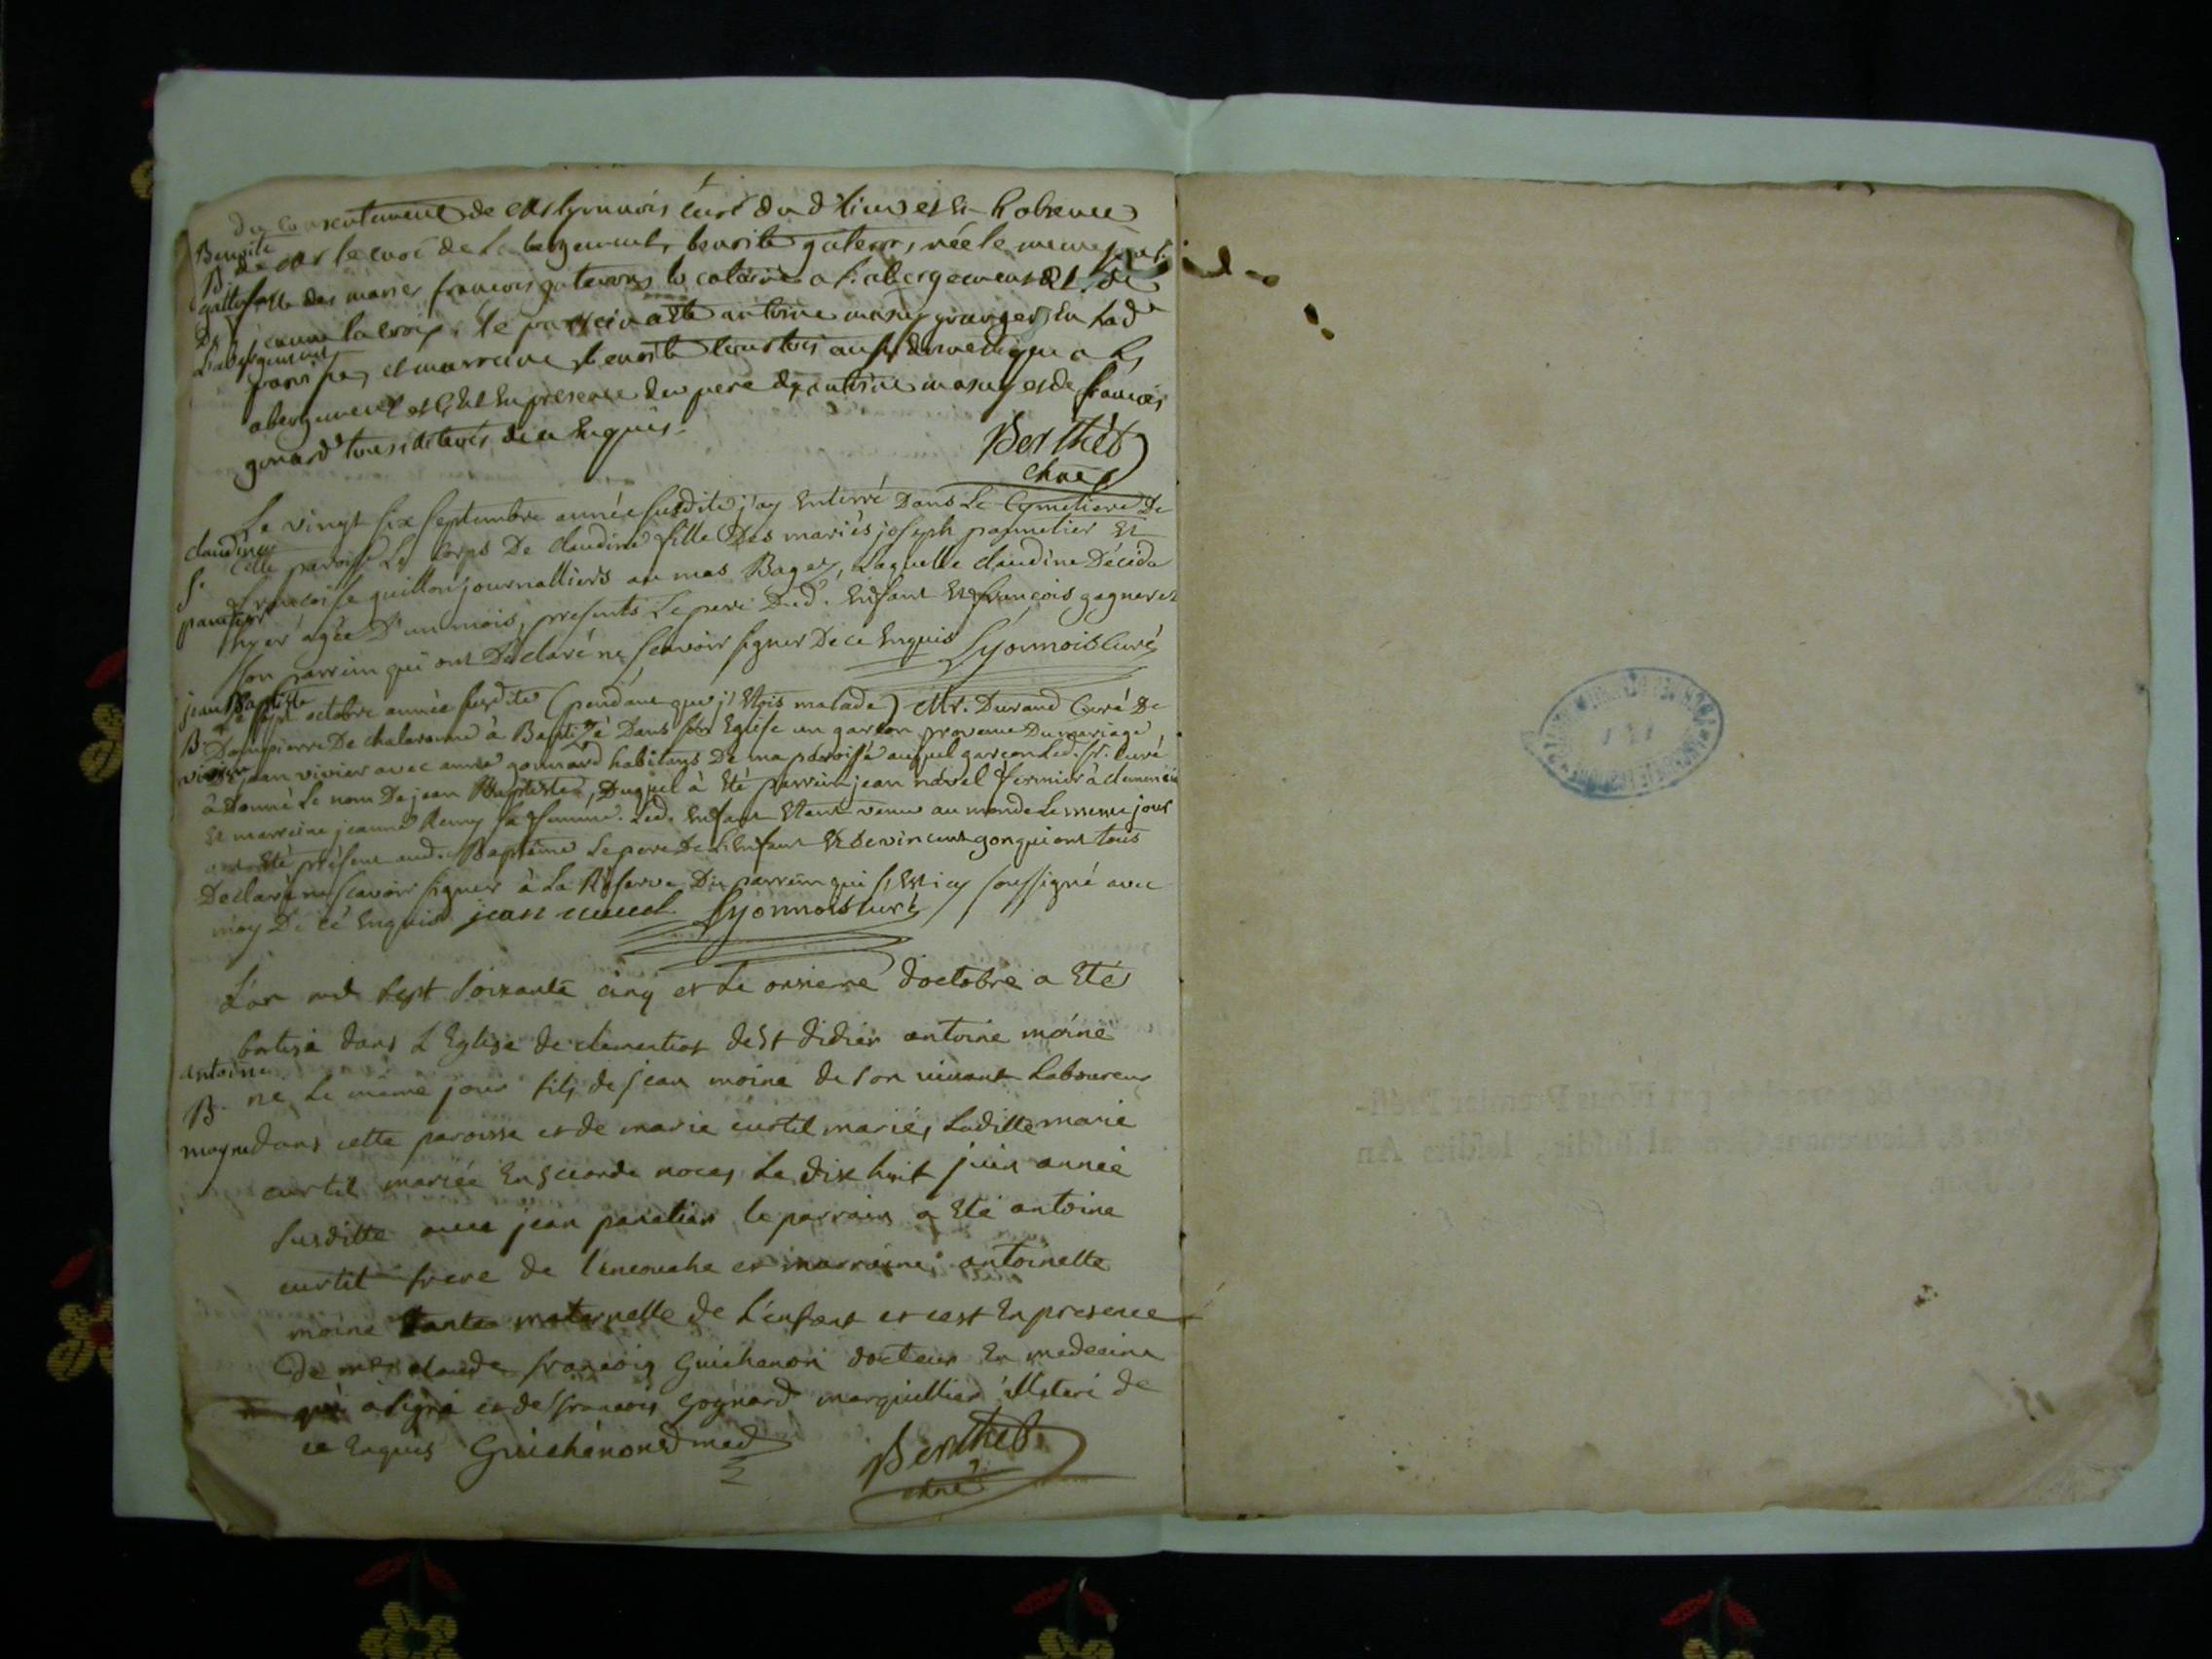 du consentement de Mr lyonnois curé du d. lieu et En l'absence
Benoite
de Mr le curé de L'abergement, benoite gateron, née le meme jour
B.
fille des mariés francois gateron à l'abergement Et de
De
L'abergement
le parrein a Ete antoine granger En lad.
paroisse, et marreine benoite domestique a L'
abergement et C'Est En presence du pere d'antoine et de francois
gonard tous illiterés de ce Enquis.
Berthet
Le vingt six septembre année susdite j'ay Enterré Dans Le Cymetiere De
claudine
Cette paroisse Le Corps De claudine fille Des mariés joseph pannetier Et
S.
francoise guillon journalliers au mas Bagey, Laquelle claudine Décéda
pannetier
hyer agée D'un mois, presents Le pere Dud. Enfant Et françois gagneret
son parrein qui ont Declaré ne scavoir signer De ce Enquis Lyonnois curé
jean Baptiste
Le sept octobre année susdite (pendant que j'Etois malade) Mr. Durand Curé De
B.
Dompierre De chalaronne à Baptizé Dans son Eglise un garçon provenu Du mariage
vivier
De jean vivier avec anne gonnard habitans De ma paroisse auquel garçon Led. Sr. Curé
à Donné Le nom De jean Baptiste, Duquel à Eté parrein jean nével fermier à clemencia
Et marreine jeanne Remy sa femme. Led. Enfant Etant venu au monde Le meme jour
ont Eté présens aud. Baptême Le pere De L'Enfant Et De vincent gon qui ont tous
Declaré ne scavoir signer à La Réserve Du parrein qui s'Est icy soussigné avec
moy De ce Enquis jean nevel Lyonnois curé
L'an mil sept soixante cinq et Le onzieme d'octobre a Eté
batisé dans L'Eglise de clementia de St didier antoine moine
antoine
B.
né Le même jour fils de jean moine de son vivant Laboureur
moyne
dans cette paroisse et de marie curtil mariés, Laditte marie
curtil mariée En seconde noces Le dix huit juin année
susditte avec jean le parrain a Eté antoine
curtil frere de l'encouche et marraine antoinette
moine tante maternelle de L'enfant et cest En presence
De mr claude françois Guichenon docteur En medecine
qui a signé et de françois gognard marguillier illiteré de
ce Enquis Guichenon d med
Berthet